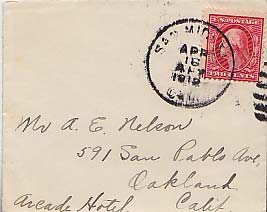 SAN MIGUEL
APR
16
1912
CAL.
U.S. POSTAGE
TWO CENTS
Mr A. E. Nelson
591 San Pablo Ave,
Oakland
Arcade Hotel. Calif.